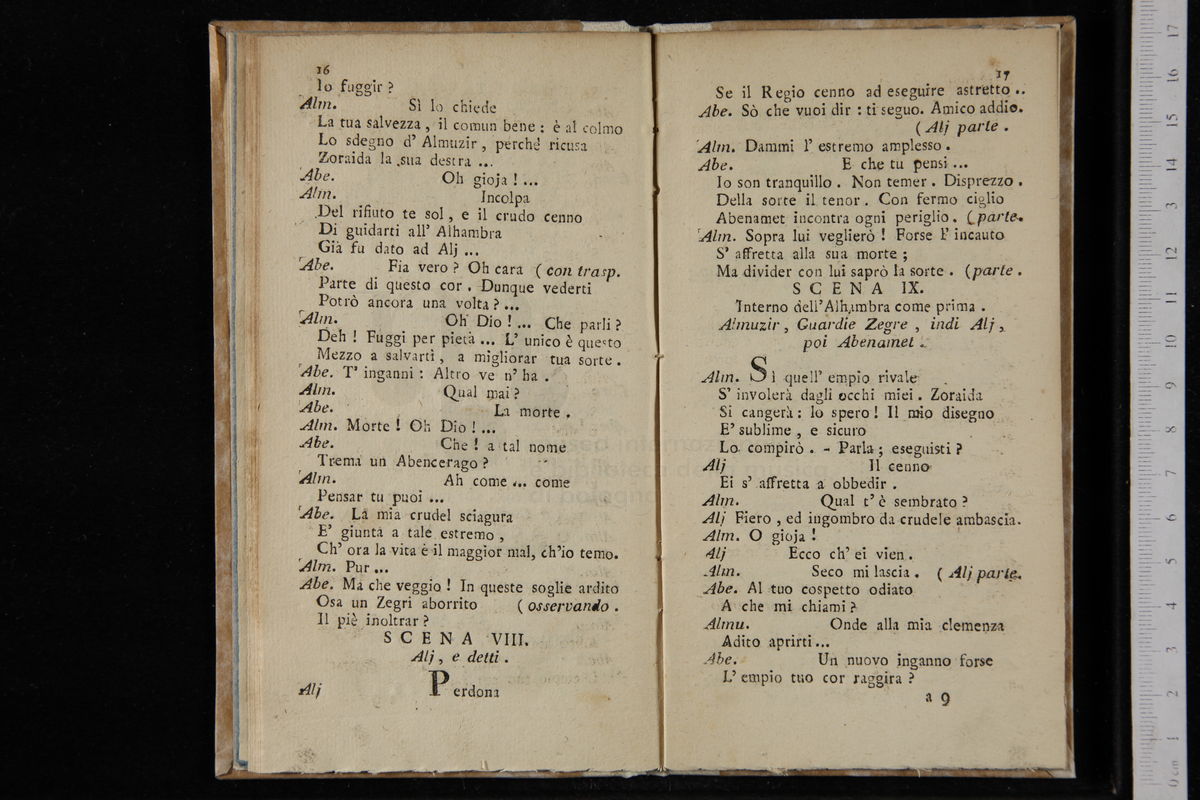 16
Io fuggir ?
Alm. Sì lo chiede
La tua salvezza , il comun bene : è al colmo
Lo sdegno d' Almuzir , perchè ricusa
Zoraida la sua destra ...
Abe. Oh gioja ! ...
Alm. Incolpa
Del rifiuto te sol , e il crudo cenno
Di guidarti all' Alhambra
Già fu dato ad Alj ...
Abe. Fia vero ? Oh cara ( con trasp.
Parte di questo cor . Dunque vederti
Potrò ancora una volta ? ...
Alm. Oh Dio ! ... Che parli ?
Deh ! Fuggi per pietà ... L' unico è questo
Mezzo a salvarti , a migliorar tua sorte .
Abe. T' inganni : Altro ve n' ha .
Alm. Qual mai ?
Abe. La morte .
Alm. Morte ! Oh Dio ! ...
Abe. Che ! a tal nome
Trema un Abencerago ?
Alm. Ah come ... come
Pensar tu puoi ...
Abe. La mia crudel sciagura
E' giunta a tale estremo ,
Ch' ora la vita è il maggior mal, ch'io temo.
Alm. Pur ...
Abe. Ma che veggio ! In queste soglie ardito
Osa un Zegri aborrito ( osservando .
Il piè inoltrar ?
SCENA VIII.
Alj , e detti .
Alj Perdona
17
Se il Regio cenno ad eseguire astretto ..
Abe. Sò che vuoi dir : ti seguo. Amico addio.
( Alj parte .
Alm. Dammi l' estremo amplesso .
Abe. E che tu pensi ...
Io son tranquillo . Non temer . Disprezzo .
Della sorte il tenor . Con fermo ciglio
Abenamet incontra ogni periglio . ( parte.
Alm. Sopra lui veglierò ! Forse l' incauto
S' affretta alla sua morte ;
Ma divider con lui saprò la sorte . (parte .
SCENA IX.
Interno dell'Alhambra come prima .
Almuzir , Guardie Zegre , indi Alj ,
poi Abenamet .
Alm. Sì quell' empio rivale
S' involerà dagli occhi miei . Zoraida
Si cangerà : lo spero ! Il mio disegno
E' sublime , e sicuro
Lo compirò . - Parla ; eseguisti ?
Alj Il cenno
Ei s' affretta a obbedir .
Alm. Qual t' è sembrato ?
Alj Fiero , ed ingombro da crudele ambascia.
Alm. O gioja !
Alj Ecco ch' ei vien .
Alm. Seco mi lascia . ( Alj parte.
Abe. Al tuo cospetto odiato
A che mi chiami ?
Almu. Onde alla mia clemenza
Adito aprirti ...
Abe. Un nuovo inganno forse
L' empio tuo cor raggira ?
a 9